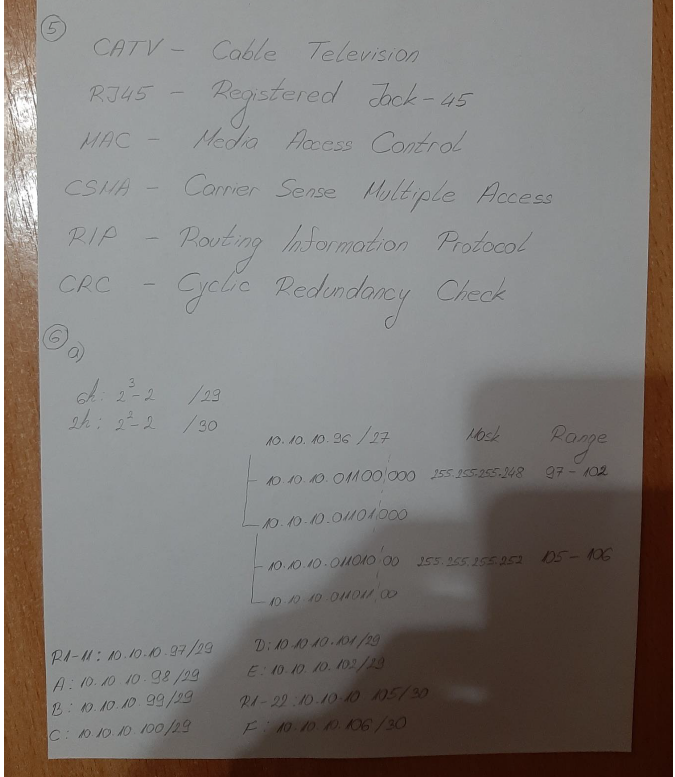 5
CATV - Cable Television
RJ45 - Registered Jack-45
MAC - Media Access Control
CSMA - Carrier Sense Multiple Access
RIP - Routing Information Protocol
CRC - Cyclic Redundancy Check
6 a)
6h: 2³-2 /29
2h: 2²-2 /30
10.10.10.96/27 Mask Range
10.10.10.01100,000 255.255.255.248 97-102
10.10.10.01101,000
10.10.10.011010,00 255.255.255.252 105-106
10.10.10.011011,00
R1-11: 10.10.10.97/29
A: 10.10.10.98/29
B: 10.10.10.99/29
C: 10.10.10.100/29
D: 10.10.10.101/29
E: 10.10.10.102/29
R1-22: 10.10.10.105/30
F: 10.10.10.106/30